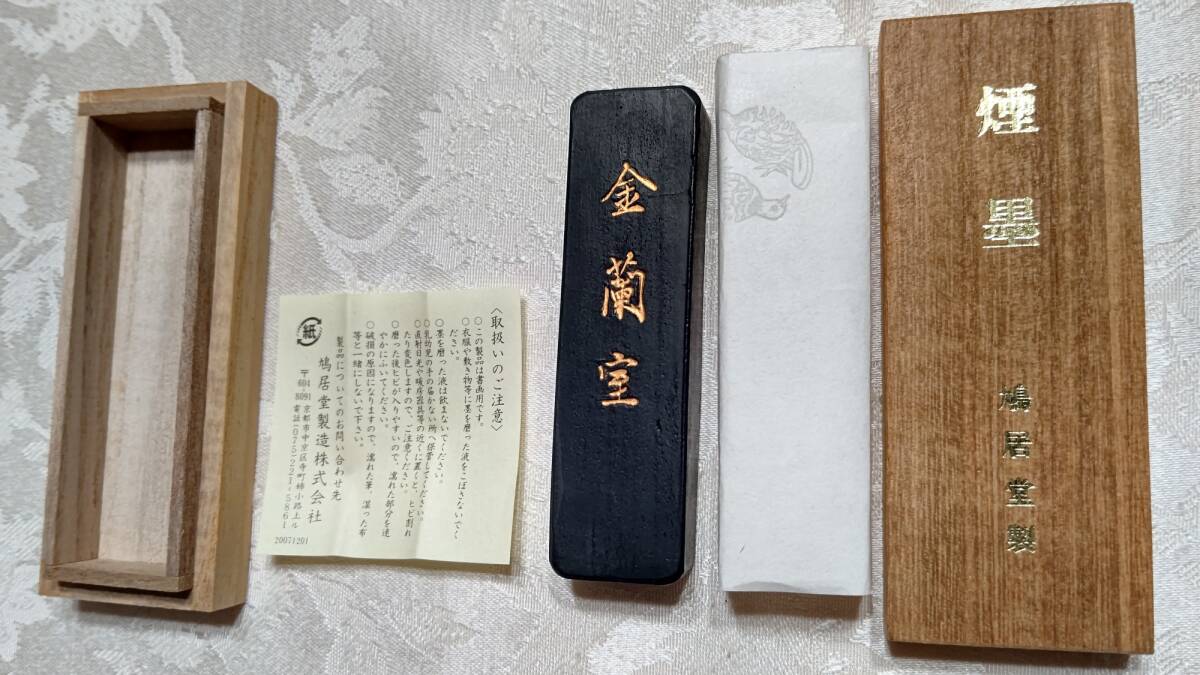 煙墨
鳩居堂製
金蘭室
〈取扱いのご注意〉
○この製品は書画用です。
○衣服や敷き物等に墨を磨った液をこぼさないでく
ださい。
○墨を磨った液は飲まないでください。
○乳幼児の手の届かない所へ保管してください。
○直射日光や暖房器具等の近くに置くと、ヒビ割れ
たり変色しますので、ご注意ください。
○磨った後ヒビが入りやすいので、濡れた部分を速
やかにふいてください。
○破損の原因になりますので、濡れた筆、湿った布
等と一緒にしないで下さい。
製品についてのお問い合わせ先
鳩居堂製造株式会社
〒604-8091 京都市中京区寺町姉小路上ル
電話(075)221-5861
紙
20071201